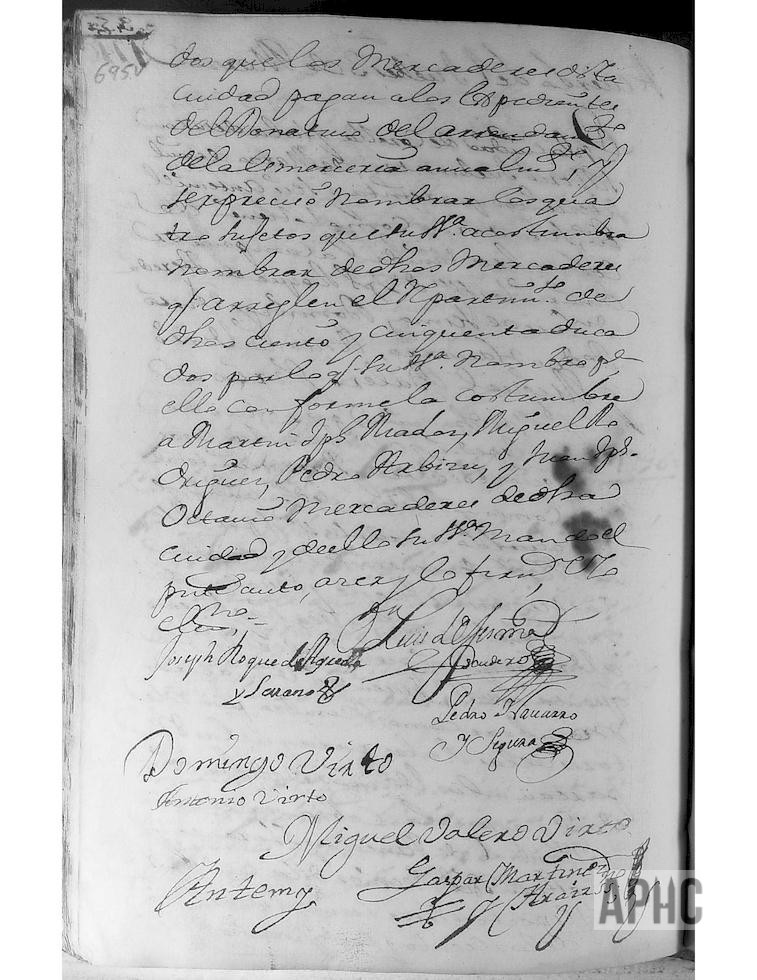 695v
dos que los Mercaderes desta
ciudad pagan a los
del Donativo del arrendam.to
de la anualm.te, y
ser preciso nombrar los qua
tro sujetos que su S.ª acostumbra
nombrar de dhos Mercaderes
q arreglen el Repartim.to de
dhos ciento y cinquenta duca
dos por lo q su S.ª nombro p.ª
ello conforme la costumbre
a Martin Jph Nadon, Miguel Ro
driguez, Pedro Arbizu, y Juan Jph
Octavio Mercaderes de dha
ciudad y de ello su S.ª mando el
pnte auto, y lo firm
Luis de
Joseph Roque de Agueda
y Serrano
Pedro Navarro
y Segura
Domingo Virto
Antonio Virto
Miguel Valero Virto
Gaspar Martinez
Antemy
APHC